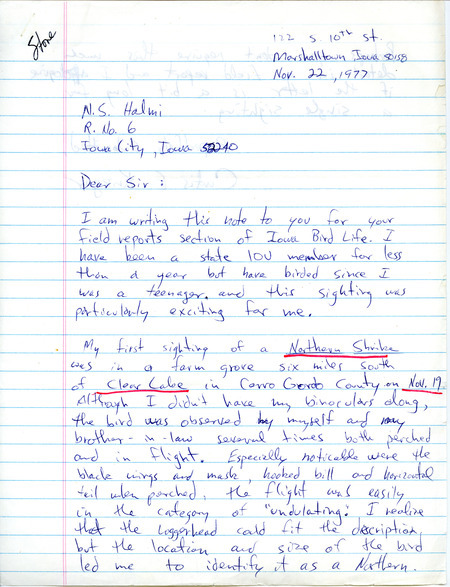 Stone
122 S 10th St.
Marshalltown, Iowa 50158
Nov. 22, 1977
N.S. Halmi
R. No. 6
Iowa City, Iowa 52240
Dear Sir:
I am writing this note to you for your
field reports section of Iowa Bird Life. I
have been a state IOU member for less
than a year but have birded since I
was a teenager. and this sighting was
particularly exciting for me.
My first sighting of a Northern Shrike
was in a farm grove six miles south
of Clear Lake in Cerro Gordo County on Nov. 19.
Although I didn't have my binoculars along,
the bird was observed by myself and my
brother-in-law several times both perched
and in flight. Especially noticable were the
black wings and mask, hooked bill and horizontal
tail when perched, the flight was easily
in the category of "undulating." I realize
that the Loggerhead could fit the description
but the location and size of the bird
led me to identify it as a Northern.